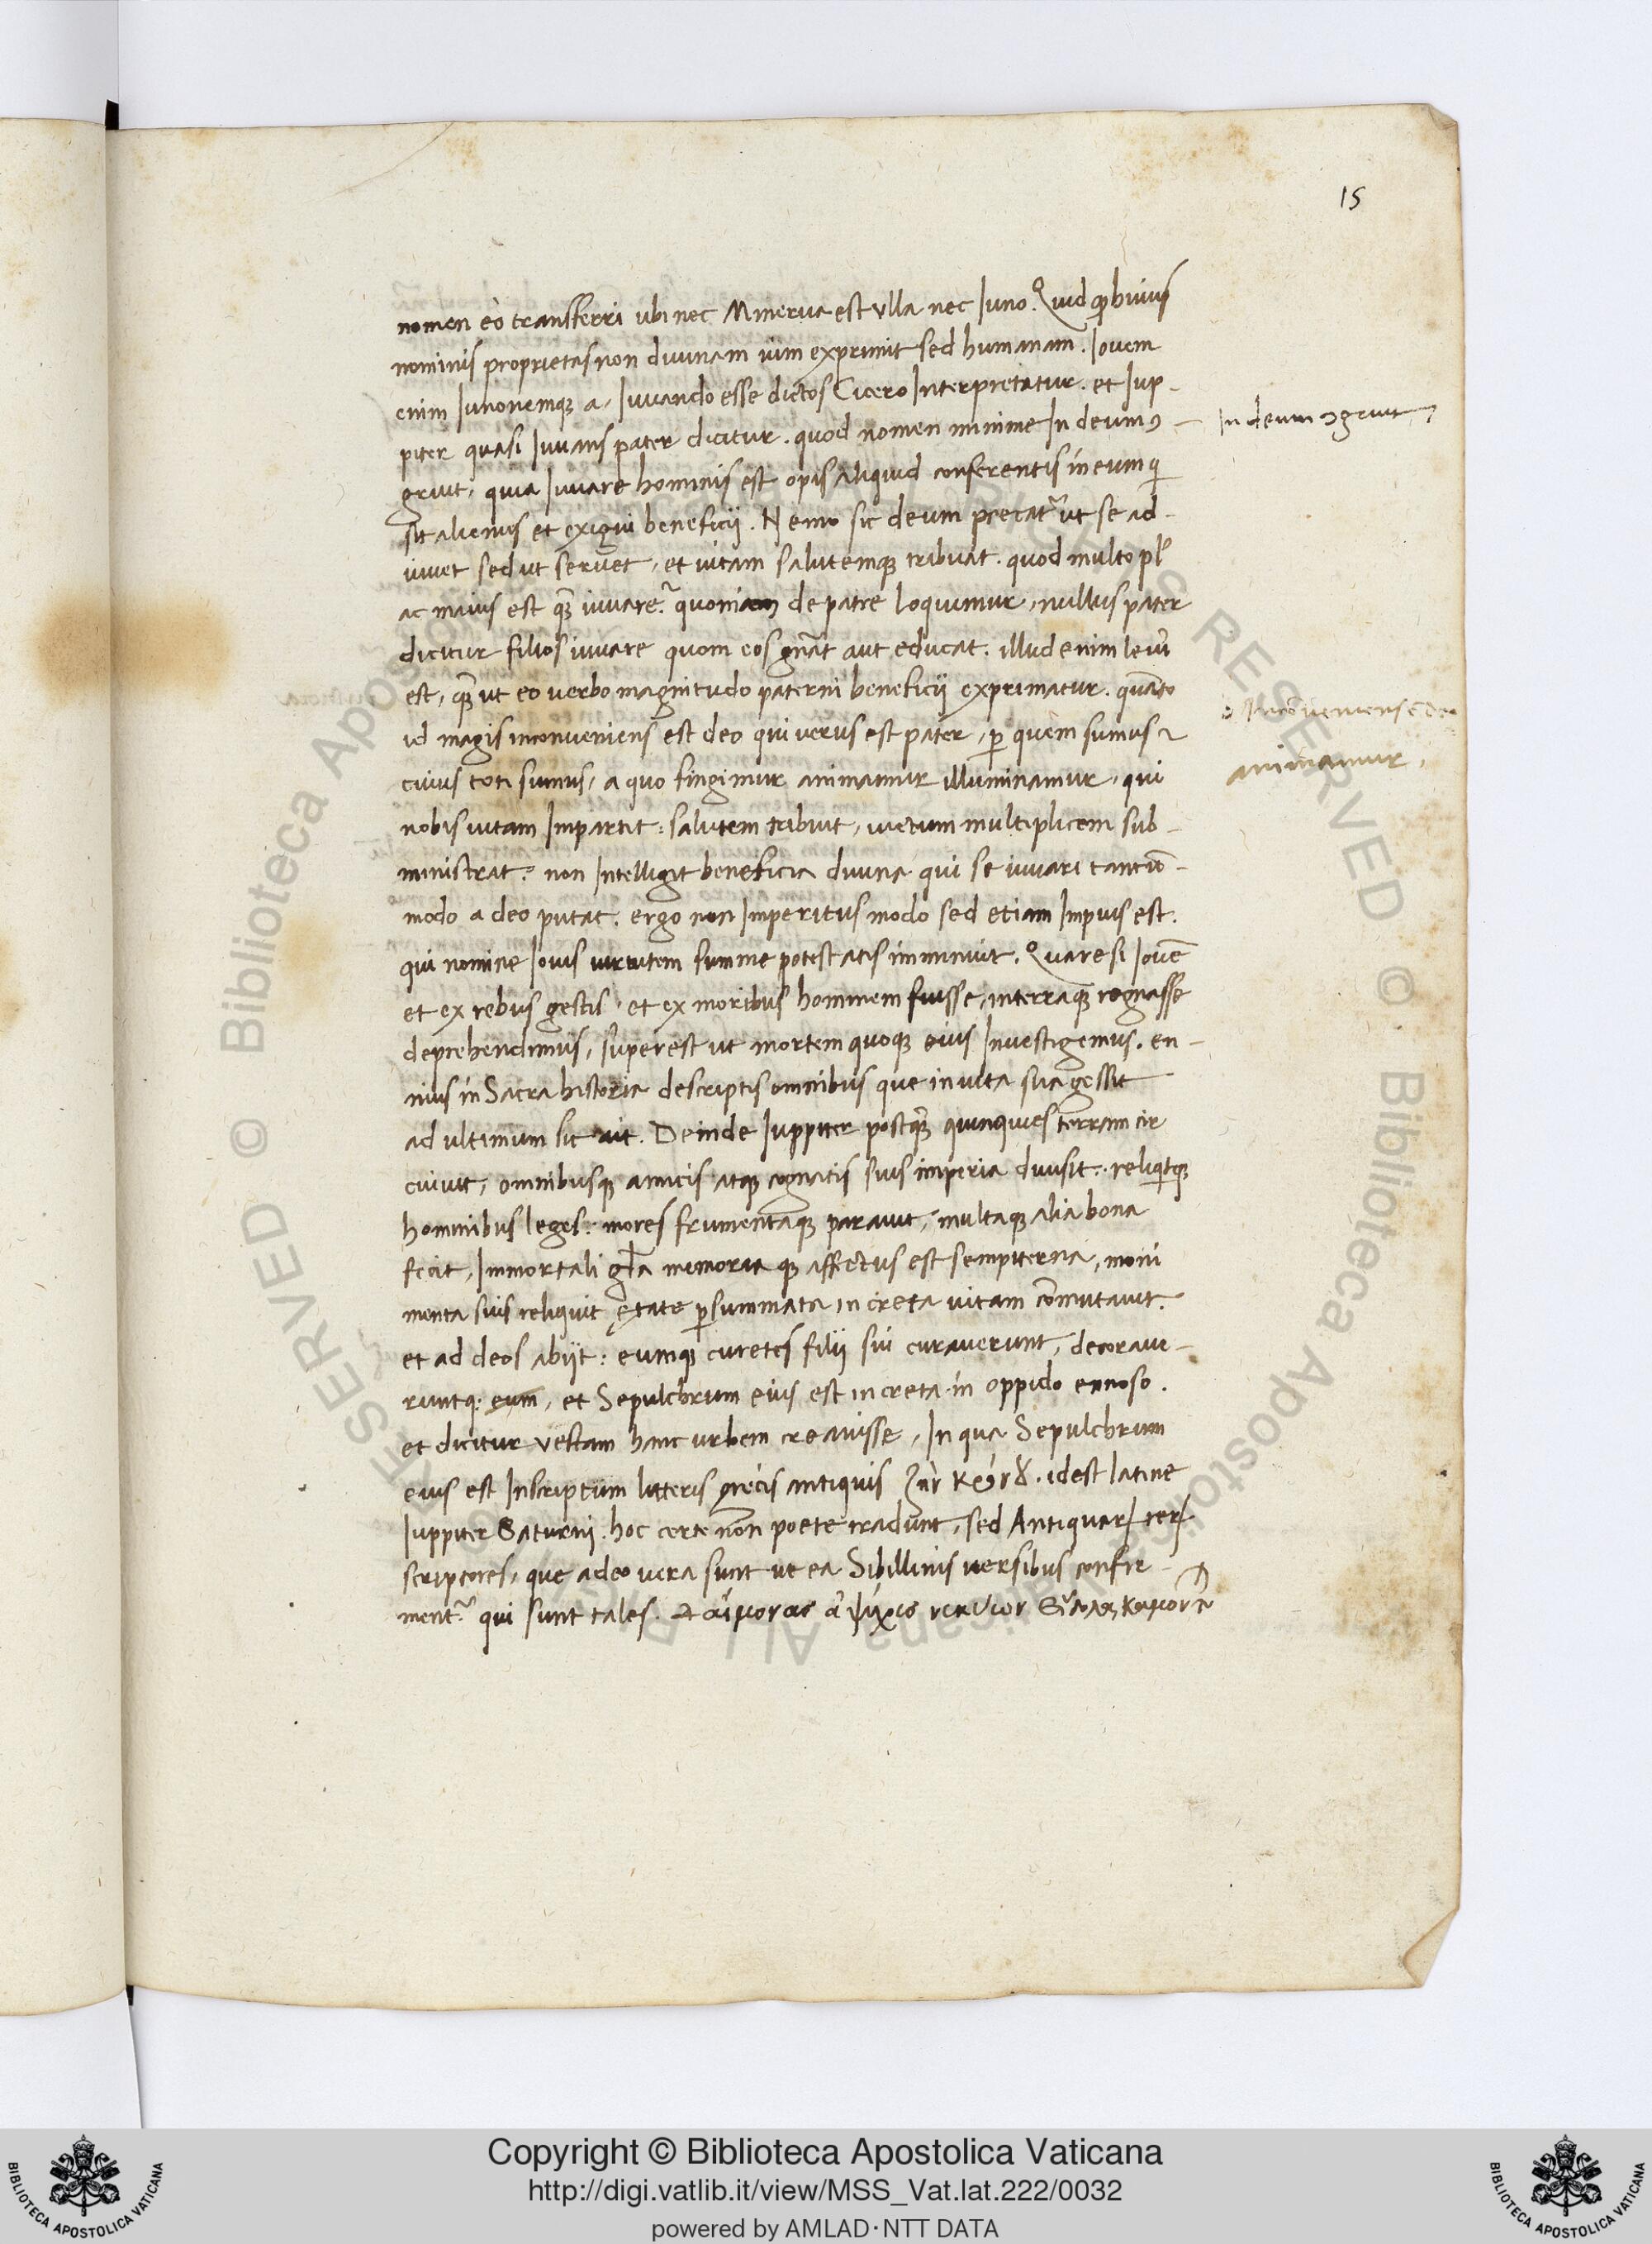 15
nomen eò transferri ubi nec Minerua est ulla nec Iuno. Quid ꝙ huius
nominis proprietas non diuinam uim exprimit sed humanam. Iouem
enim Iunonemqꝫ a, Iuuando esse dictos Cicero Interpretatur. et Iup-
piter quasi Iuuans pater dicitur. quod nomen minime In deum ꝯ-
gruit, quia Iuuare hominis est opis aliquid conferentis in eum q
sit alienus et exigui beneficii. Nemo sic deum precat᷑ ut se ad-
iuuet sed ut seruet, et uitam salutemqꝫ tribuat. quod multo pl᷒
ac maius est qꝫ̃ iuuare. quoniam de patre loquimur, nullus pater
dicitur filios iuuare quom eos gn̄at aut educat. illud enim leui᷒
est, qꝫ̃ ut eo uerbo magnitudo paterni beneficii exprimatur. quāto
id magis inconueniens est deo qui uerus est pater, ꝑ quem sumus &
cuius toti sumus, a quo fingimur animamur illuminamur, qui
nobis uitam Impartit: salutem tribuit, uictum multiplicem sub-
ministrat. non Intelligit beneficia diuina qui se iuuari tantūo-
modo a deo putat. ergo non Imperitus modo sed etiam Impius est.
qui nomine Iouis uirtutem summe potestatis imminuit. Quare si Iouē
et ex rebus gestis, et ex moribus hominem fuisse, in terraqꝫ regnasse
deprehendimus, superest ut mortem quoqꝫ eius Inuestigemus. en-
nius in Sacra historia descriptis omnibus que in uita sua gessit
ad ultimum sic ait. Deinde Iuppiter postqꝫ̃ quinquies terram cir
cuiuit, omnibusqꝫ amicis atqꝫ cognatis suis imperia diuisit. reliqtqꝫ
hominibus leges: mores frumentaqꝫ parauit, multaqꝫ alia bona
fecit, Immortali gl̄a memoria qꝫ affectus est sempiterna, moni
menta suis reliquit ętate ꝑsummata in creta uitam cōmutauit.
et ad deos abiit: eumqꝫ curetes filii sui curauerunt, decoraue-
runtqꝫ eum, et Sepulchrum eius est in creta in oppido ennoso.
et dicitur vestam hanc urbem creauisse, In qua Sepulchrum
eius est Inscriptum litteris grecis antiquis ζὰν κρόνȣ. idest latine
Iuppiter Saturni. hoc certe non poete tradunt, sed Antiquaꝝ reꝝ
scriptores, que adeo uera sunt ut ea Sibillinis uersibus confir-
ment᷑ qui sunt tales.
In deum ꝯgruit,
Incōueniens ē deo
animamur,
Copyright © Biblioteca Apostolica Vaticana
http://digi.vatlib.it/view/MSS_Vat.lat.222/0032
powered by AMLAD·NTT DATA
BIBLIOTECA APOSTOLICA VATICANA
BIBLIOTECA APOSTOLICA VATICANA